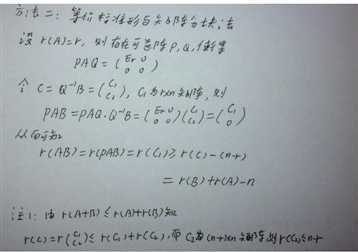 方法二:等价标准形与矩阵分块法
设 r(A)=r, 则存在可逆阵P,Q,使得
PAQ = (Er 0 0 0)
令 C = Q⁻¹B = (C₁ C₂), C₁为r×n矩阵, 则
PAB = PAQ·Q⁻¹B = (Er 0 0 0)(C₁ C₂) = (C₁ 0)
从而知
r(AB) = r(PAB) = r(C₁) ≥ r(C) - (n-r)
= r(B)+r(A)-n
注1: 由 r(A+B) ≤ r(A)+r(B) 知
r(C) = r(C₁ C₂) ≤ r(C₁)+r(C₂), 而 C₂为(n-r)×n矩阵,则 r(C₂)≤n-r